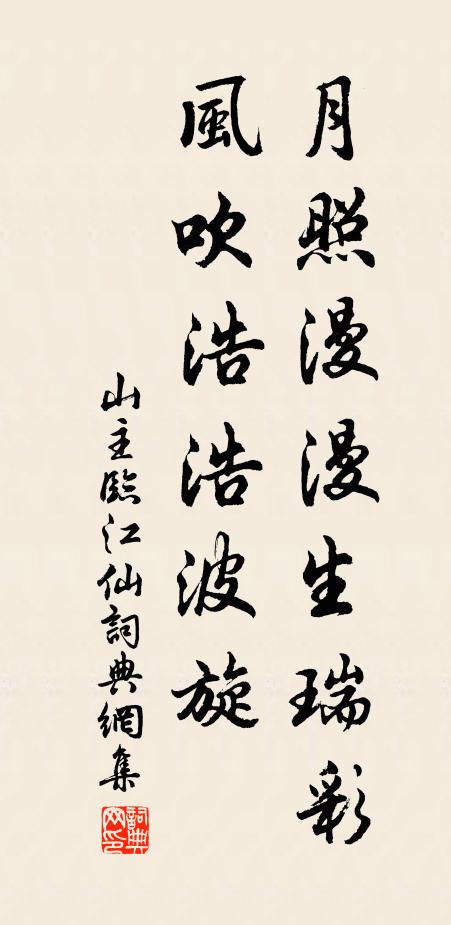 月照漫漫生瑞彩
風吹浩浩波旋
山主臨江仙詞典網集
詞典网印